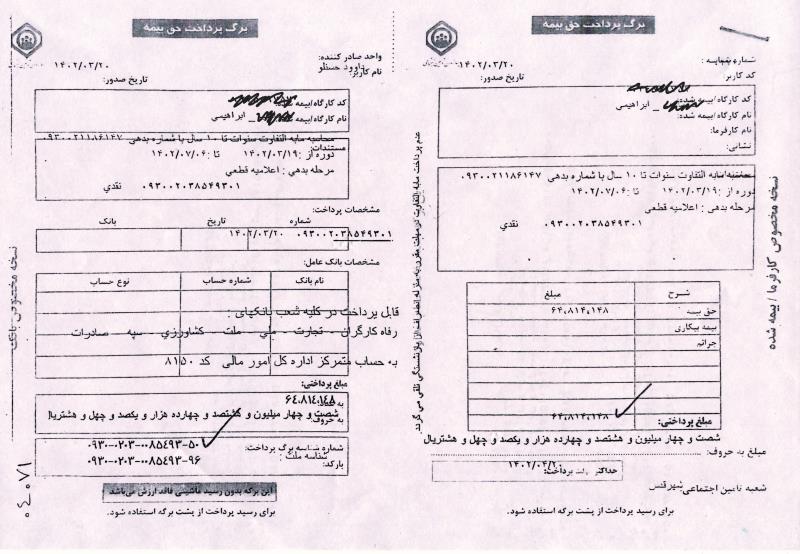 برگ پرداخت حق بیمه
شماره شناسه:
کد کاربر:
۱۴۰۲/۰۳/۲۰
تاریخ صدور:
کد کارگاه/بیمه شده:
نام کارگاه/بیمه شده: ابراهیمی
نام کارفرما:
نشانی:
محاسبه مابه التفاوت سنوات تا ۱۰ سال با شماره بدهی ۰۹۳۰۰۲۱۱۸۶۱۴۷
دوره از :۱۴۰۲/۰۳/۱۹ تا :۱۴۰۲/۰۷/۰۶
مرحله بدهی : اعلامیه قطعی
۰۹۳۰۰۲۰۳۸۵۴۹۳۰۱ نقدي
شرح مبلغ
حق بیمه ۶۴،۸۱۴،۱۴۸
بیمه بیکاری
جرائم
۶۴،۸۱۴،۱۴۸
مبلغ پرداختی:
شصت و چهار میلیون و هشتصد و چهارده هزار و یکصد و چهل و هشتریال
مبلغ به حروف:
حداکثر مهلت پرداخت: ۱۴۰۲/۰۴/۲۰
شعبه تامین اجتماعی: شهرقدس
برای رسید پرداخت از پشت برگه استفاده شود.
نسخه مخصوص کارفرما / بیمه شده
برگ پرداخت حق بیمه
واحد صادر کننده:
داوود حسنلو
نام کاربر:
۱۴۰۲/۰۳/۲۰
تاریخ صدور:
کد کارگاه/بیمه شده:
نام کارگاه/بیمه شده: ابراهیمی
محاسبه مابه التفاوت سنوات تا ۱۰ سال با شماره بدهی ۰۹۳۰۰۲۱۱۸۶۱۴۷
مستندات:
دوره از :۱۴۰۲/۰۳/۱۹ تا :۱۴۰۲/۰۷/۰۶
مرحله بدهی : اعلامیه قطعی
۰۹۳۰۰۲۰۳۸۵۴۹۳۰۱ نقدي
مشخصات پرداخت:
شماره تاریخ بانک
۰۹۳۰۰۲۰۳۸۵۴۹۳۰۱ ۱۴۰۲/۰۳/۲۰
مشخصات بانک عامل:
نام بانک شماره حساب نوع حساب
قابل پرداخت در کلیه شعب بانکهای :
رفاه کارگران - تجارت - ملي - ملت - کشاورزي - سپه - صادرات
به حساب متمرکز اداره کل امور مالی کد ۸۱۵۰
مبلغ پرداختی:
۶۴،۸۱۴،۱۴۸
به عدد:
شصت و چهار میلیون و هشتصد و چهارده هزار و یکصد و چهل و هشتریال
به حروف:
۰۹۳۰-۰۲۰۳-۰۰۸۵۴۹۳-۵۰
شماره شناسه برگ پرداخت:
شناسه ملت :
۰۹۳۰-۰۲۰۳-۰۰۸۵۴۹۳-۹۶
بارکد:
این برگه بدون رسید ماشینی فاقد ارزش می‌باشد
برای رسید پرداخت از پشت برگه استفاده شود.
نسخه مخصوص بانک
۰۴۰۷۱